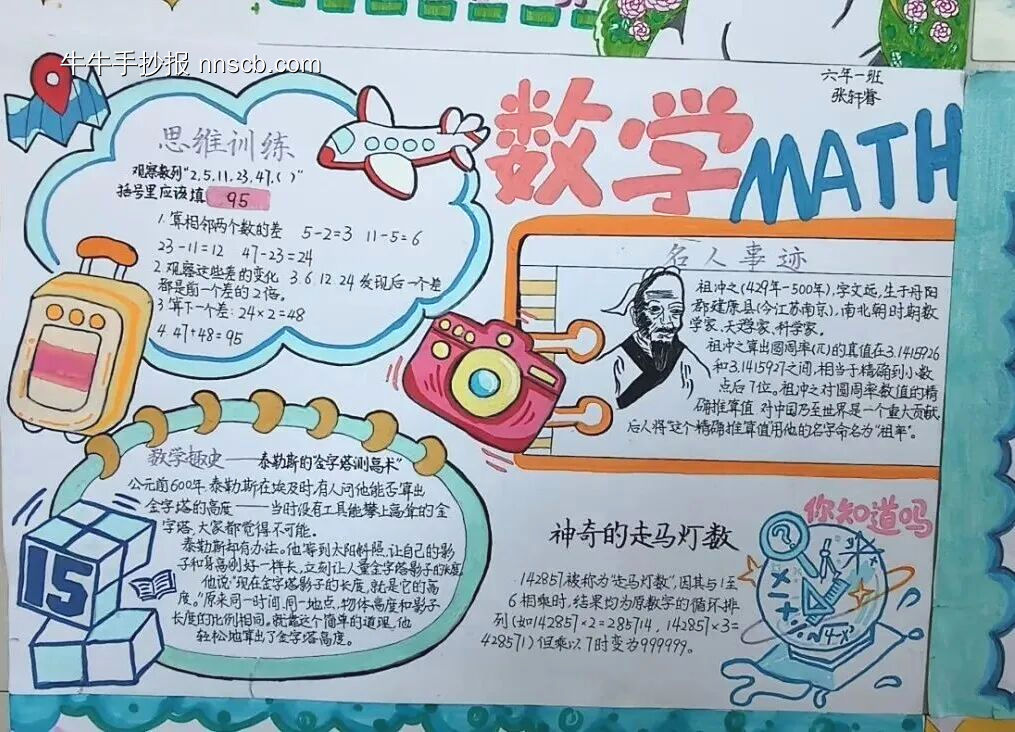 牛牛手抄报 nnscb.com
六年一班
张轩睿
数学MATH
思维训练
观察数列“2.5.11.23.47.( )”
括号里应该填 95
1.算相邻两个数的差 5-2=3 11-5=6
23-11=12 47-23=24
2.观察这些差的变化 3.6.12.24 发现后一个差
都是前一个差的2倍。
3.算下一个差:24×2=48
4.47+48=95
名人事迹
祖冲之(429年-500年),字文远,生于丹阳
郡建康县(今江苏南京),南北朝时期数
学家、天文学家、科学家。
祖冲之算出圆周率(π)的真值在3.1415926
和3.1415927之间,相当于精确到小数
点后7位。祖冲之对圆周率数值的精
确推算值 对中国乃至世界是一个重大贡献,
后人将“这个精确推算值用他的名字命名为“祖率”。
数学趣史——泰勒斯的“金字塔测高术”
公元前600年,泰勒斯在埃及时有人问他能否算出
金字塔的高度——当时没有工具能攀上高耸的金
字塔,大家都觉得不可能。
泰勒斯却有办法。他等到太阳斜照,让自己的影
子和身高刚好一样长,立刻让人量金字塔影子的长度,
他说:“现在金字塔影子的长度,就是它的高
度。”原来同一时间、同一地点,物体高度和影子
长度的比例相同。就靠这个简单的道理,他
轻松地算出了金字塔高度。
15
你知道吗
神奇的走马灯数
142857被称为“走马灯数”,因其与1至
6相乘时,结果均为原数字的循环排
列(如142857×2=285714,142857×3=
428571)但乘以7时变为999999。
?
√4-x²